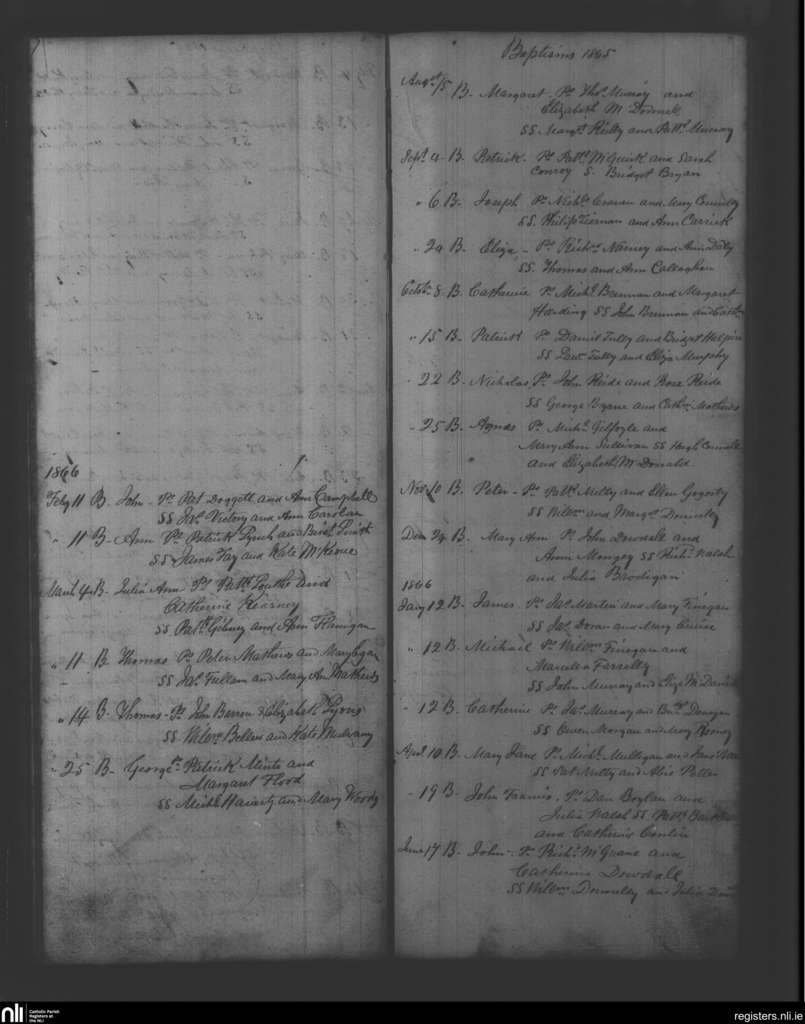 1866
Feby 11 B. John - Ps. Pat Doggett and Ann Campbell
SS Jas. Victory and Ann Carolan
" 11 B. Ann Ps. Patrick Lynch and
SS James Fay and Kate McKeone
March 4 B. Julia Ann - Ps. Patk. and
Catherine Kearney
SS Patk. Gibney and Ann Flanigan
" 11 B. Thomas Ps. Peter Mathews and Mary Egan
SS Jas. Fullam and Mary Ann Mathews
" 14 B. Thomas - Ps. John Barron & Elizabeth Lyons
SS Willm. Bellew and Kate
" 25 B. George Ps. Patrick and
Margaret Flood
SS Michl. and Mary Woods
Baptisms 1865
Augst. 15 B. Margaret - Ps. Thos. Murray and
Elizabeth
SS Margt. Reilly and Patk. Murray
Sept. 4 B. Patrick Ps. Patk. McGuirk and Sarah
Conroy S. Bridget Bryan
" 6 B. Joseph Ps. Michl. and Mary Connolly
SS. Philip Tiernan and Ann Carrick
" 29 B. Eliza - Ps. Richd. and Ann Daly
SS. Thomas and Ann Callaghan
Octobr. 8 B. Catherine Ps. Michl. Brennan and Margaret
Harding SS John Brennan and
" 15 B. Patrick Ps. Daniel Tully and Bridget Halpin
SS Law. Tully and Eliza Murphy
" 22 B. Nicholas Ps. John Reide and Rose Reide
SS George Byrne and Cathn. Mathews
" 25 B. Agnes Ps. Michl. Gilfoyle and
Mary Ann Sullivan SS Hugh
and Elizabeth McDonald
Nov. 10 B. Peter - Ps. Patk. Melly and Ellen Gogarty
SS Willm. and Margt.
Decr. 24 B. Mary Ann Ps. John Dowdall and
Anne Mongey SS Richd. Walsh
and Julia Brodigan
1866
Jany 12 B. James Ps. Jas. Martin and Mary Finegan
SS Jas. Doran and Mary Cruise
" 12 B. Michael Ps. Willm. Finegan and
Marcella Farrelly
SS John Murray and Eliza McDaniel
" 12 B. Catherine Ps. Jas. Murray and Donegan
SS Owen Morgan and Mary Rooney
April 10 B. Mary Jane Ps. Michl. Mulligan and Jane
SS Pat Melly and Alice Potter
" 19 B. John Francis. Ps. Dan Boylan and
Julia Walsh SS Patk.
and Catherine Conlin
June 17 B. John - Ps. Richd. McGuane and
Catherine Dowdall
SS Willm. Donnelly and Julia
nli
Catholic Parish
Registers at
the NLI
registers.nli.ie